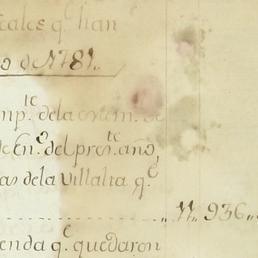 cales q.^e han
o d 1781..
mp.^te de la exem. de
de En.^o del pres.^te año,
as de la Villalta q.^e
..................,, 11,, 936,,
enda q.^e quedaron